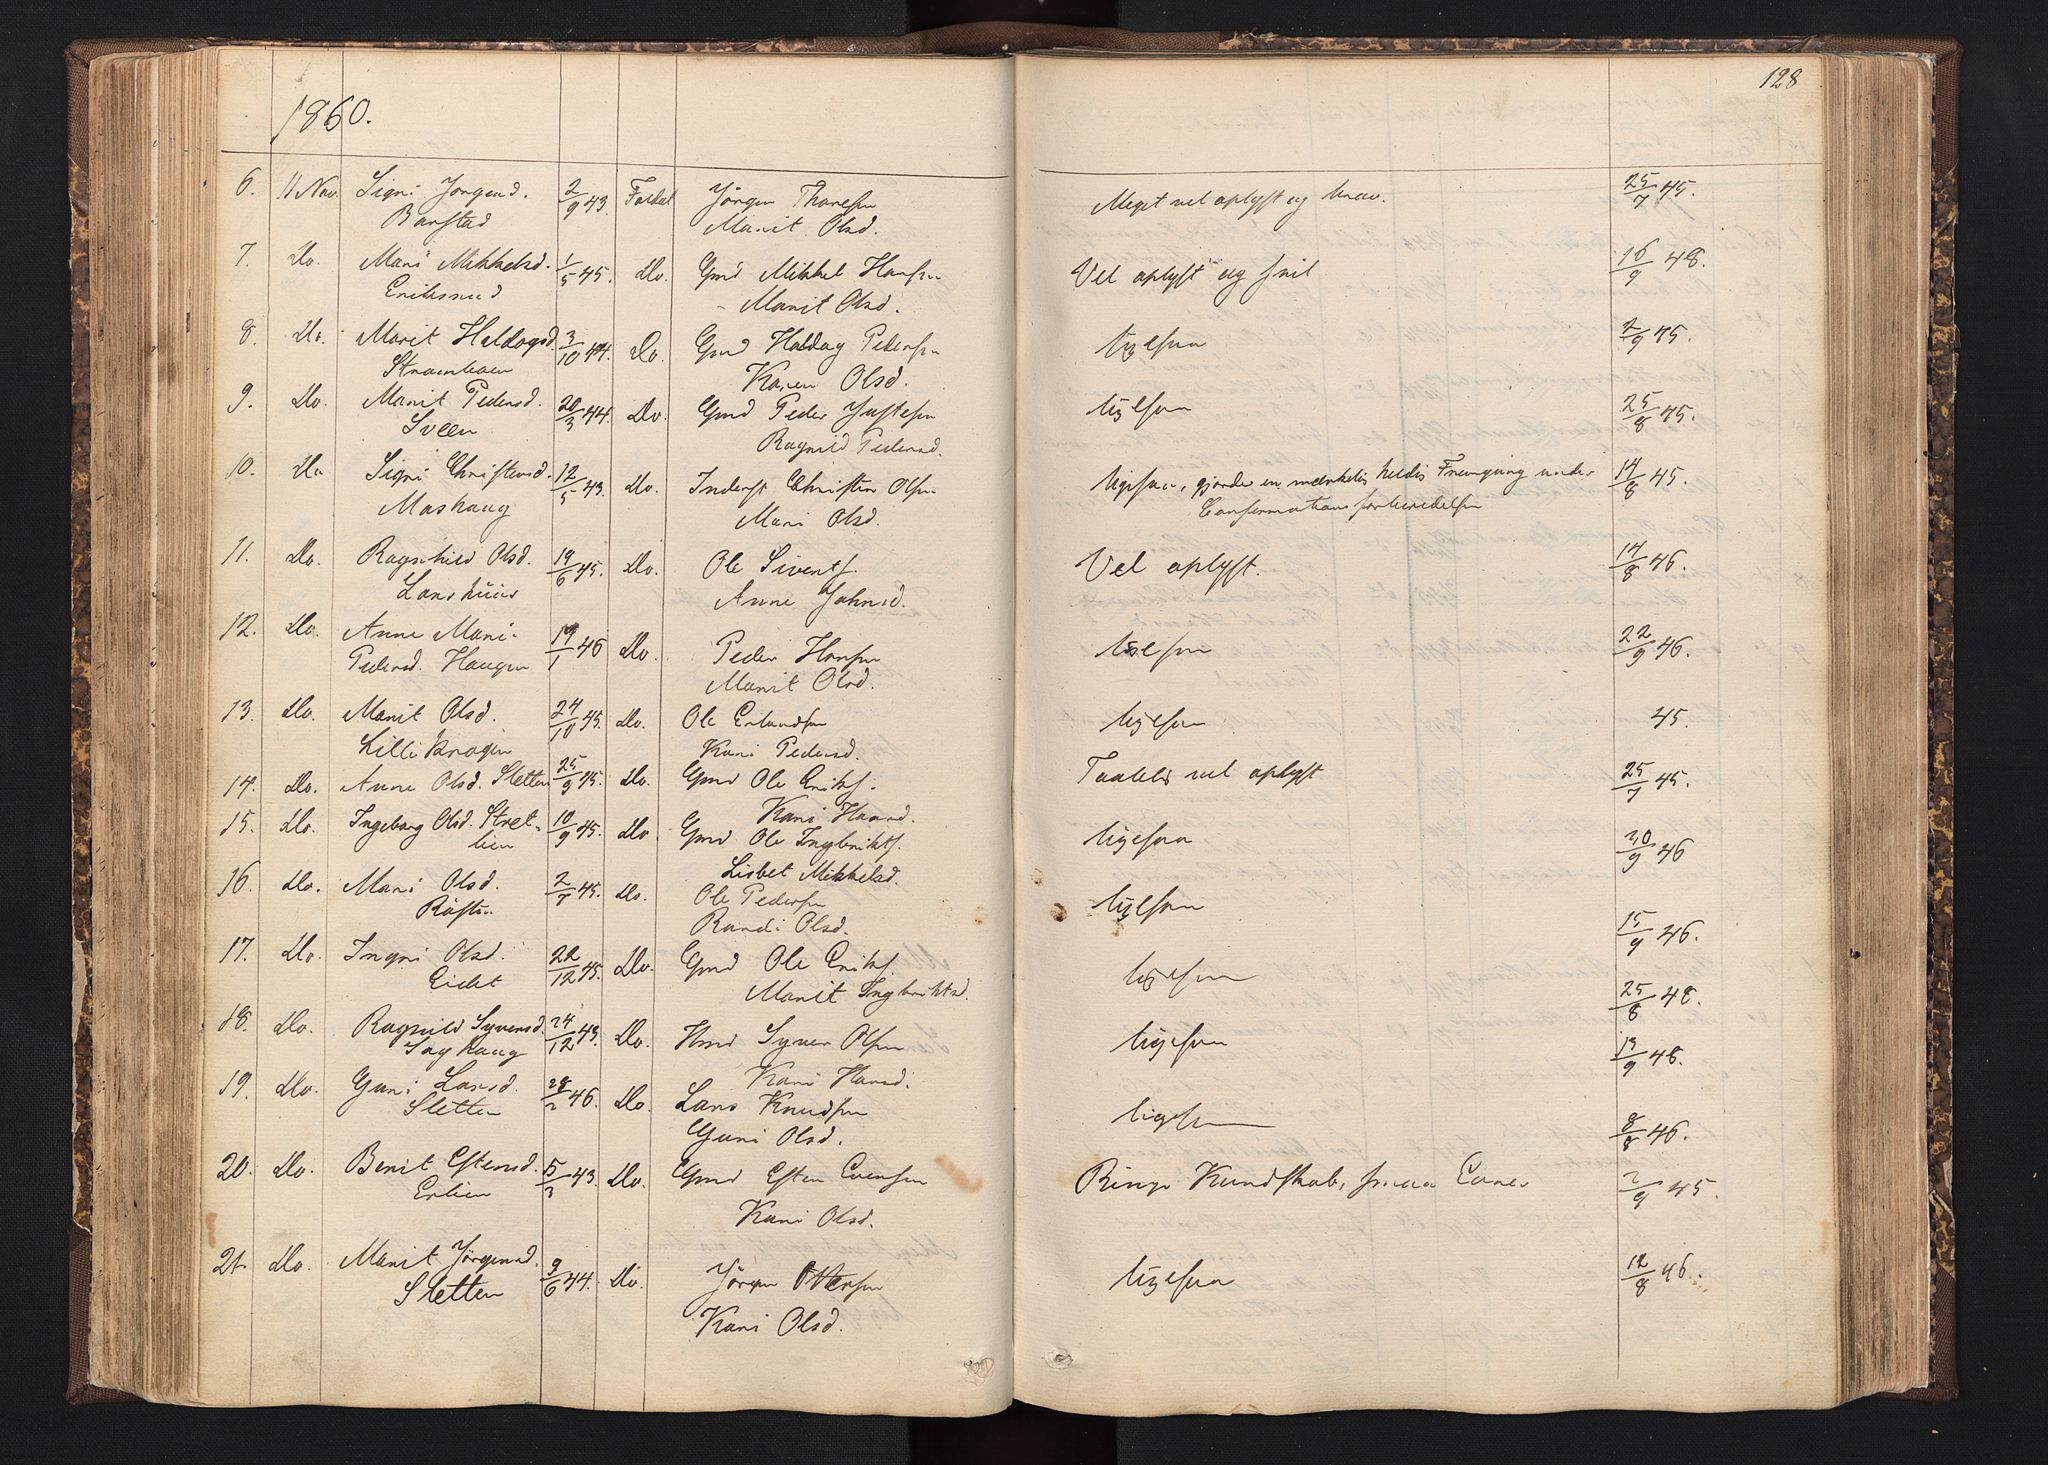 128
1860.
6. 11 Nov. Sigri Jørgensd. 2/9 43. Foldal Jørgen Thoresen Meget vel oplyst og brav. 25/7 45.
Barstad Marit Olsd.
7. Do. Mari Mikkelsd. 1/5 45. Do. Gmd Mikkel Hansen Vel oplyst og snil 16/9 48.
Eriksrud Marit Olsd.
8. Do. Marit Haldogsd 3/10 44. Do. Gmd Haldog Pedersen ligesaa 2/9 45.
Strømhaen Karen Olsd.
9. Do. Marit Pedersd. 20/3 44. Do. Gmd Peder Justesen ligesaa 25/8 45.
Sveen Ragnild Pedersd.
10. Do Sigri Christensd. 12/5 43. Do. Inderst Christen Olsen ligesaa, gjorde en mærkelig heldig Fremgang under 14/8 45.
Moshaug Mari Olsd. Confirmationsforberedelsen
11. Do. Ragnhild Olsd. 19/6 45. Do. Ole Siverts. Vel oplyst. 14/8 46.
Larshuus Anne Johnsd.
12. Do. Anne Mari 19/1 46 Do. Peder Hansen ligesaa 22/9 46.
Pedersd. Haugen Marit Olsd.
13. Do. Marit Olsd. 24/10 45. Do. Ole Erlandsen ligesaa 45.
Lillekrogen Kari Pedersd.
14. Do. Anne Olsd. Sletten 25/9 45. Do. Gmd Ole Eriks. Taalelig vel oplyst 25/7 45.
Kari Hansd.
15. Do. Ingeborg Olsd. Stret- 10/9 45. Do. Gmd Ole Ingebrikts. ligesaa 30/9 46
lien Lisbet Mikkelsd.
16. Do. Mari Olsd. 2/7 45. Do. Ole Pedersen ligesaa 15/9 46.
Røften Randi Olsd.
17. Do. Ingri Olsd. 22/12 45. Do. Gmd Ole Eriks. ligesaa 25/8 48.
Eidet Marit Ingbriktsd.
18. Do. Ragnild Syversd. 24/12 43. Do. Hmd Syver Olsen ligesaa 13/9 48.
Saghaug Kari Hansd.
19. Do. Guri Larsd. 28/2 46. Do. Lars Knudsen ligesaa 8/8 46.
Sletten Guri Olsd.
20. Do. Berit Estensd. 5/3 43. Do. Gmd Esten Evensen Ringe Kundskab, smaa Evner 2/9 45.
Erlien Kari Olsd.
21. Do. Marit Jørgensd. 9/6 44. Do. Jørgen Ottersen ligesaa 12/8 46.
Sletten Kari Olsd.